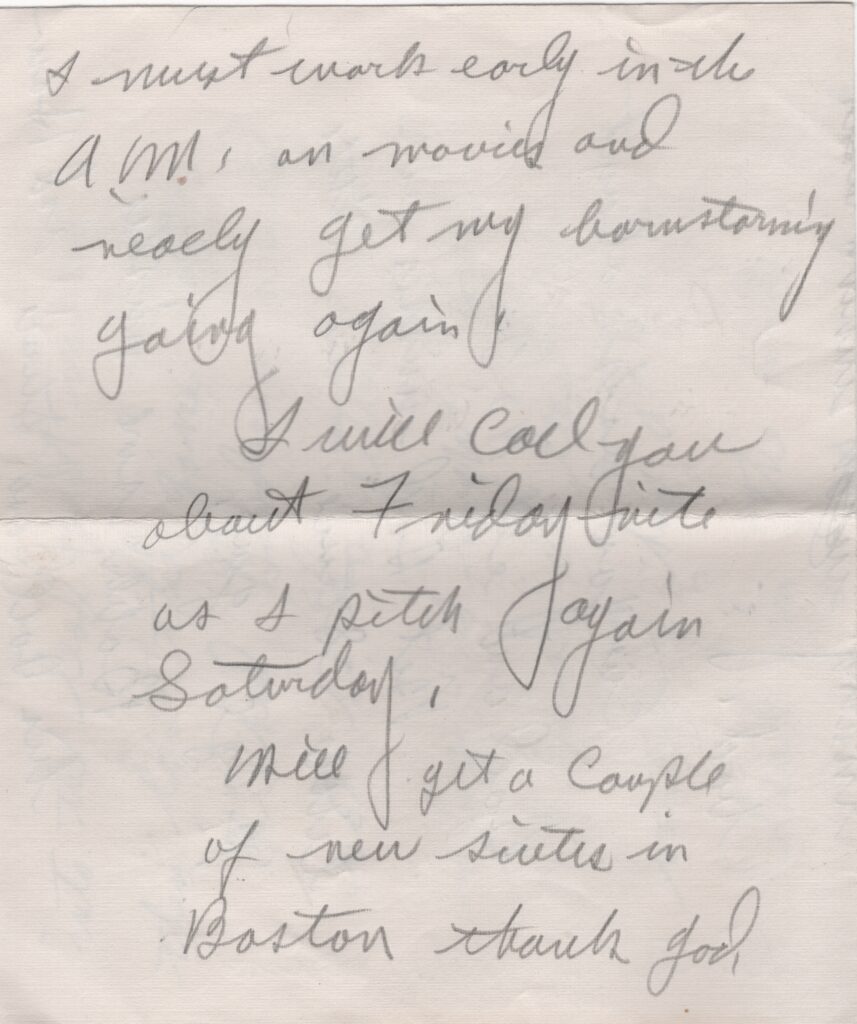 I must work early in the
A.M. on movies and
really get my barnstorming
going again,
I will call you
about Friday nite
as I pitch again
Saturday,
Will get a couple
of new suites in
Boston thank god,